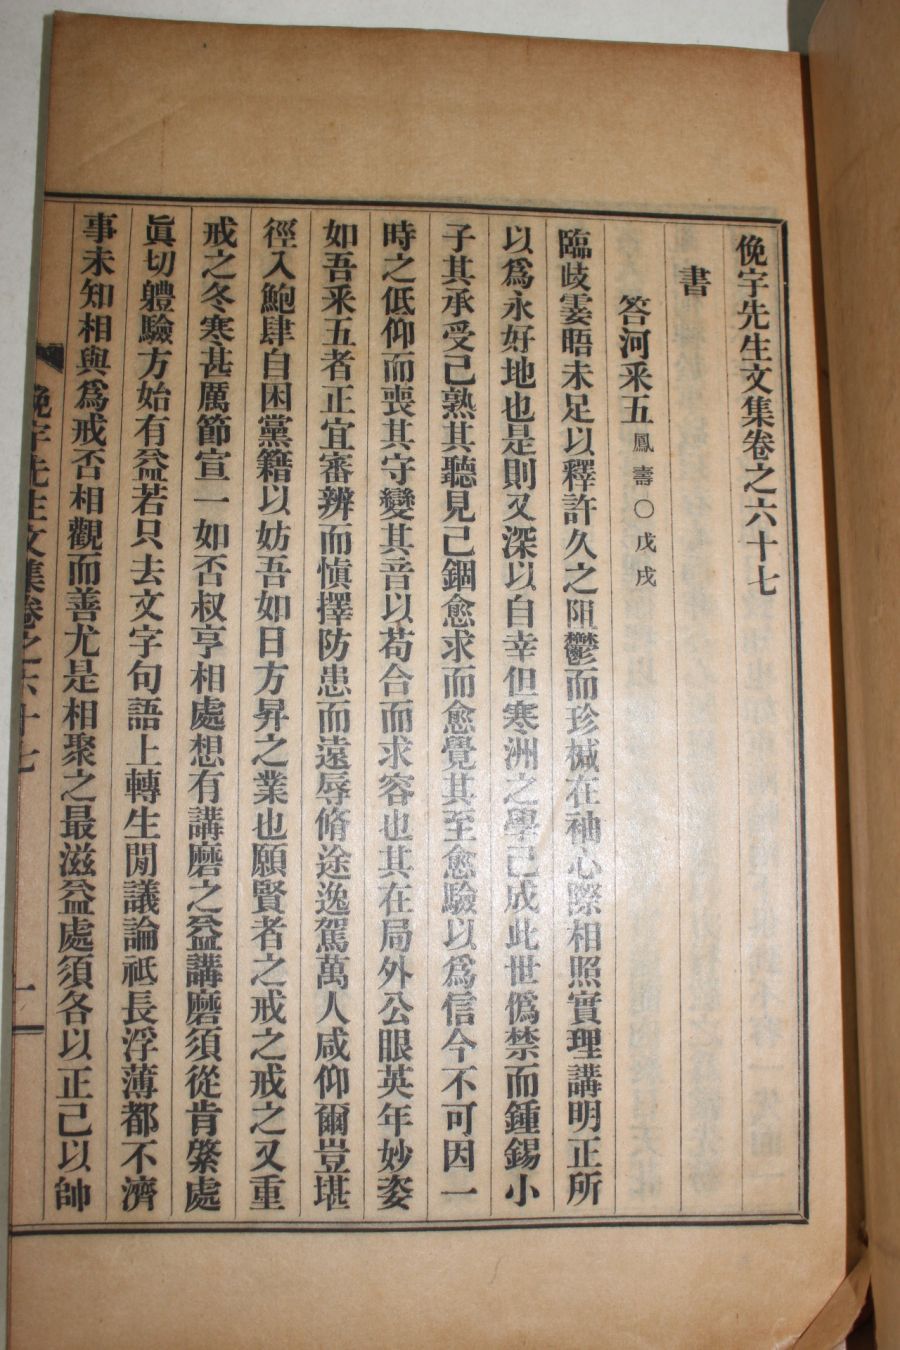 俛宇先生文集卷之六十七
書
答河釆五鳳壽○戊戌
臨歧霎晤未足以釋許久之阻鬱而珍椷在袖心際相照實理講明正所
以爲永好地也是則又深以自幸但寒洲之學已成此世僞禁而鍾錫小
子其承受已熟其聽見已錮愈求而愈覺其至愈驗以爲信今不可因一
時之低仰而喪其守變其音以苟合而求容也其在局外公眼英年妙姿
如吾釆五者正宜審辨而愼擇防患而遠辱脩途逸駕萬人咸仰爾豈堪
徑入鮑肆自困黨籍以妨吾如日方昇之業也願賢者之戒之戒之又重
戒之冬寒甚厲節宣一如否叔亨相處想有講磨之益講磨須從肯綮處
眞切軆驗方始有益若只去文字句語上轉生閒議論祗長浮薄都不濟
事未知相與爲戒否相觀而善尤是相聚之最滋益處須各以正己以帥
俛宇先生文集卷之六十七 一